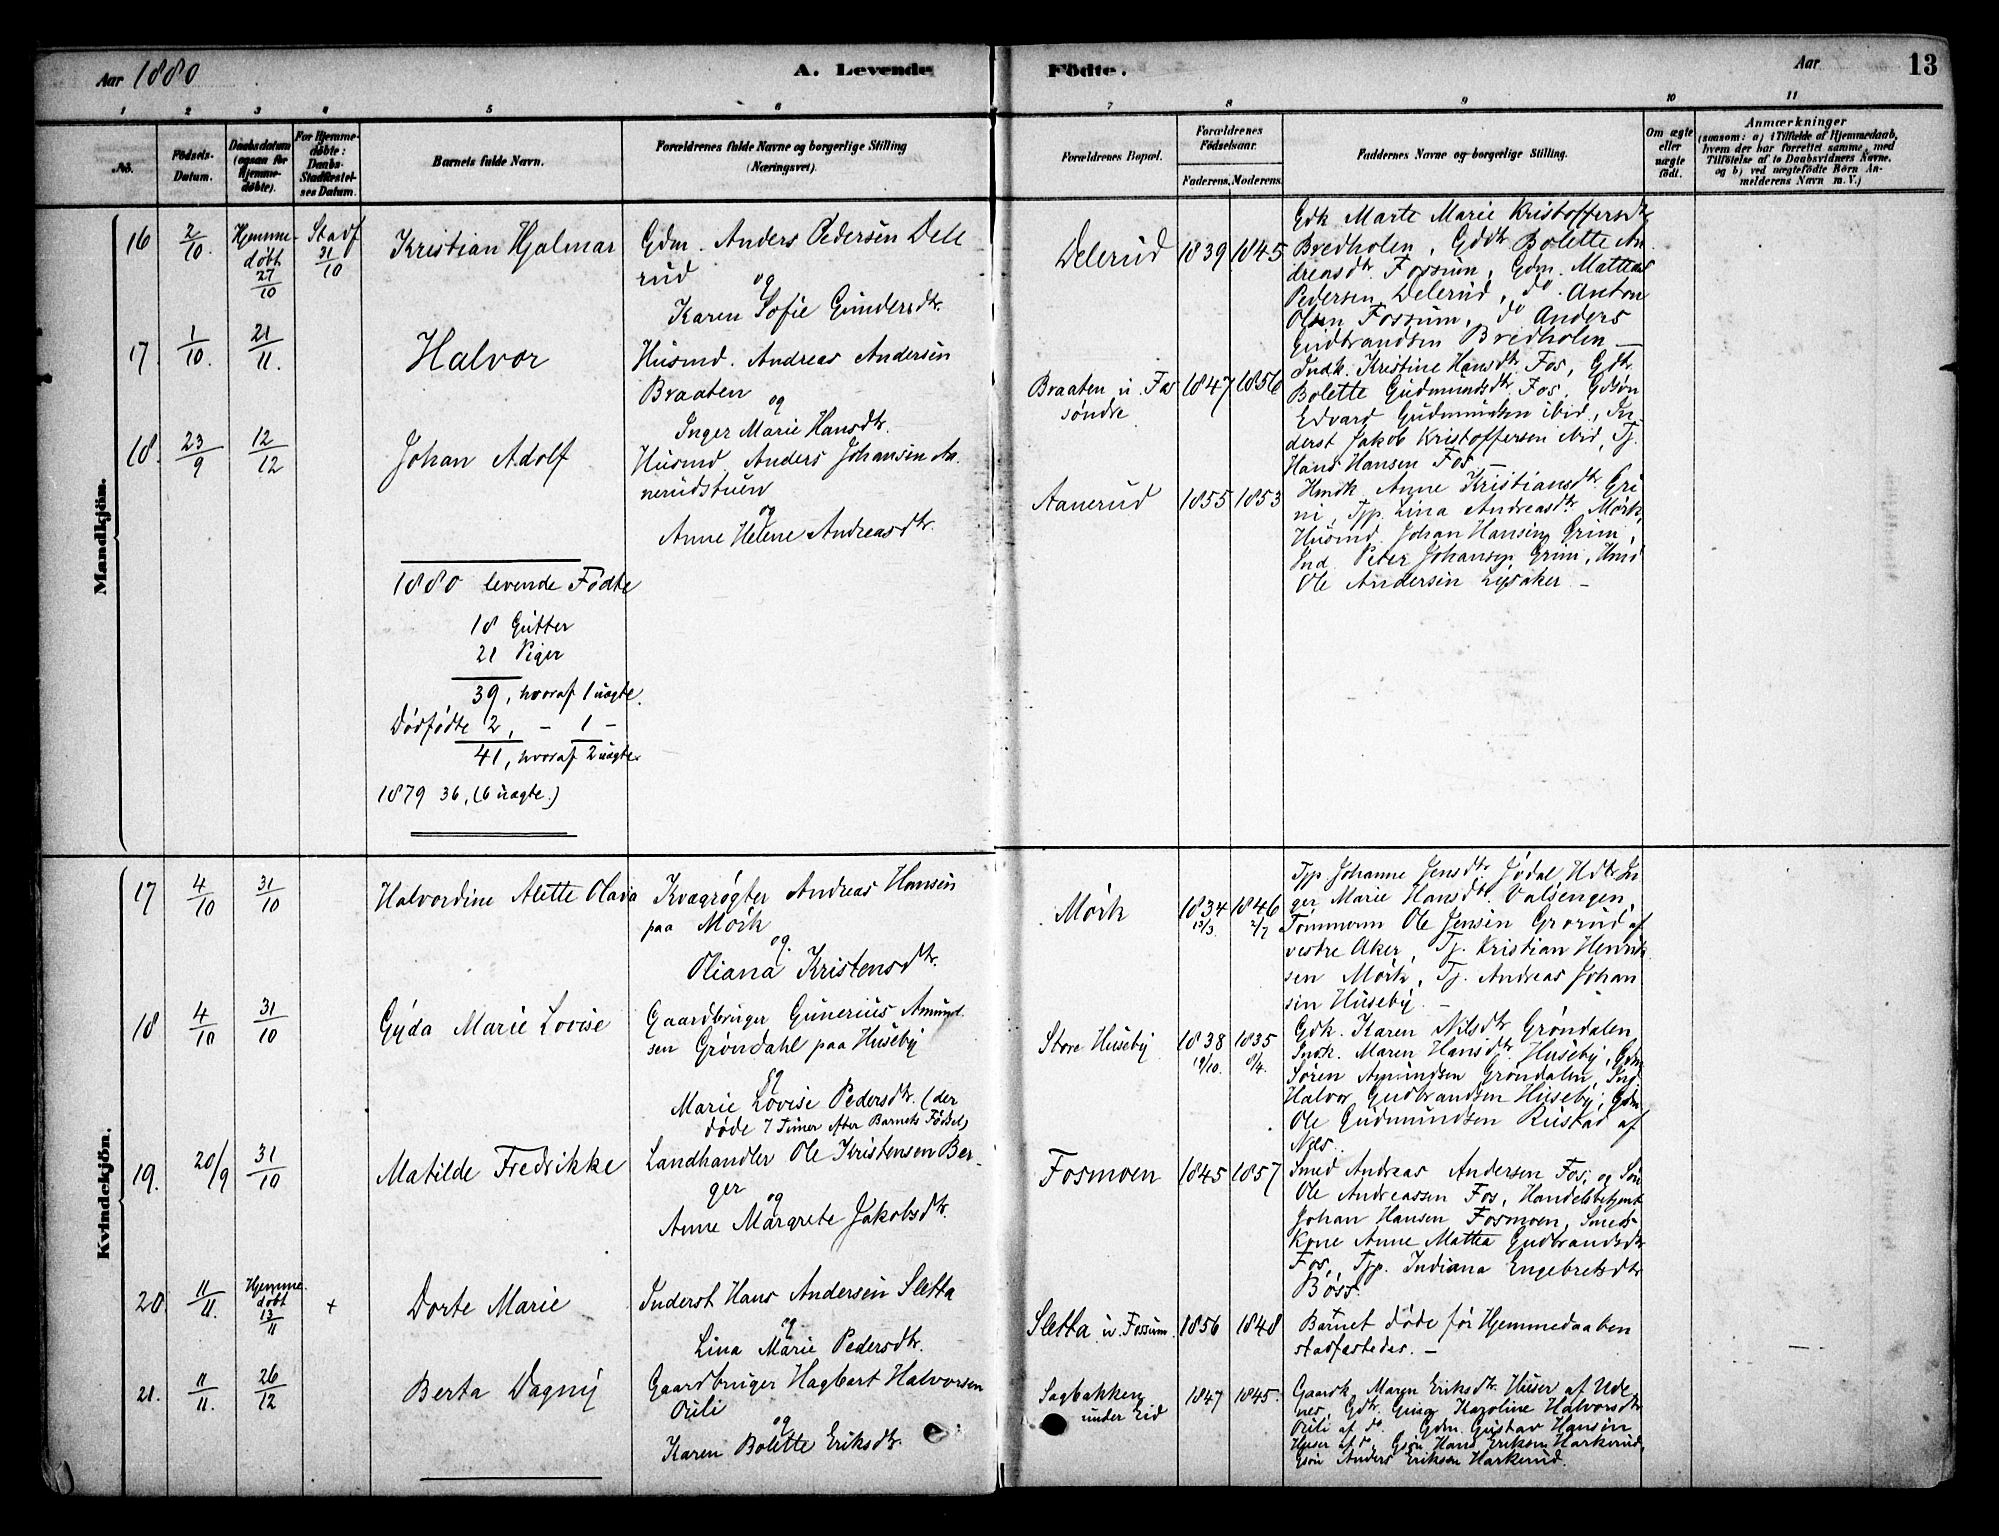 Aar 1880
A. Levende
Födte.
Aar
13
1 2 3 4 5 6 7 8 9 10 11
No.
Födsels-
Datum.
Daabsdatum
(ogsaa for
Hjemme-
döbte).
For Hjemme-
døbte:
Daabs-
Stadfæstel-
ses Datum.
Barnets fulde Navn.
Forældrenes fulde Navne og borgerlige Stilling
(Næringsvei).
Forældrenes Bopæl.
Forældrenes
Födselsaar.
Faderens. Moderens.
Faddernes Navne og borgerlige Stilling.
Om ægte
eller
uægte
födt.
Anmærkninger
(saasom: a) i Tilfælde af Hjemmedaab,
hvem der har forrettet samme, med
Tilföielse af to Daabsvidners Navne,
og b) ved uægtefödte Börn An-
melderens Navn m. V.)
Mandkjön.
16
2/10.
Hjemme-
døbt
27/10
Stadf
31/10
Kristian Hjalmar
Gdm. Anders Pedersen Dele
rud
og
Karen Sofie Gundersdtr.
Delerud
1839 1845
Gdk Marte Marie Kristoffersdtr
Bredholen, Gddtr Bolette An
dreasdtr. Fossum, Gdm. Mattias
Pedersen Delerud, do. Anton
Olsen Fossum, do Anders
Gudbrandsen Bredholen —
17.
1/10.
21/11.
Halvor
Husmd. Andreas Andersen
Braaten
og
Inger Marie Hansdtr.
Braaten u. Fos
søndre
1847 1856
Indk. Kristine Hansdtr Fos, Gdtr.
Bolette Gudmundsdtr Fos, Gdsøn
Edvard Gudmundsen ibid, In-
derst Jakob Kristoffersen ibid, Tj.
Hans Hansen Fos —
18.
23/9
12/12
Johan Adolf
Husmd. Anders Johansen An.
nerudstuen
og
Anne Helene Andreasdtr.
Aanerud
1855 1853
Hmdk Anne Kristiansdtr Gri
ni, Tjp. Lina Andreasdtr Mørk,
Husmd. Johan Hansen Grini,
Ind. Peter Johansen Grini, Hmd
Ole Andersen Lysaker —
1880 levende Fødte
18 Gutter
21 Piger
39, hvoraf 1 uægte.
Dødfødte 2, — 1 —
41, hvoraf 2 uægte
1879 36, (6 uægte.)
Kvindekjön.
17
4/10
31/10
Halvordine Alette Olava
Kvægrøgter Andreas Hansen
paa Mørk
og.
Oliana Kristensdtr.
Mørk
1834 1846
13/3. 2/7
Tjp Johanne Jensdtr Jødal Hdtr In
ger Marie Hansdtr. Valsengen,
Tømmerm Ole Jensen Grorud af
vestre Aker, Tj. Kristian Henrik
sen Mørk, Tj. Andreas Johan
sen Huseby. —
18
4/10
31/10
Gyda Marie Lovise
Gaardbruger Gunerius Amund.
sen Grøndahl paa Huseby
og
Marie Lovise Pedersdtr. (der
døde 7 Timer efter Barnets Fødsel)
Store Huseby
1838 1835
19/10. 8/4.
Gdk. Karen Nilsdtr Grøndalen
Indk. Maren Hansdtr Huseby, Gdm
Søren Amundsen Grøndalen, Ind.
Halvor Gudbrandsen Huseby, Gdm.
Ole Gudmundsen Rustad af
Næs.
19.
20/9
31/10
Matilde Fredrikke
Landhandler Ole Kristensen Ber-
ger
og
Anne Margrete Jakobsdtr.
Fosmoen
1845 1857
Smed Andreas Andersen Fos, og Søn
Ole Andreassen Fos, Handelsbetjent
Johan Hansen Fosmoen, Smeds-
Kone Anne Mattea Gudbrandsdtr
Fos, Tjp. Indiana Engebretsdtr
Bøss.
20
11/11.
Hjemme
døbt
13/11
+
Dorte Marie
Inderst Hans Andersen Sletta
og
Lina Marie Pedersdtr.
Sletta u. Fossum.
1856 1848
Barnet døde før Hjemmedaaben
stadfæstedes. —
21.
11/11.
26/12
Berta Dagny
Gaardbruger Hagbart Halvorsen
Ruli
og
Karen Bolette Eriksdtr.
Sagbakken
under Eid
1847 1845.
Gaardk. Maren Eriksdtr. Huser af Ude
nes, Gdtr. Gina Karoline Halvorsdtr
Ruli af do. Gdm. Gustav Hansen
Huser af do, Gsøn Hans Eriksen Harkerud,
Gsøn Anders Eriksen Harkerud.